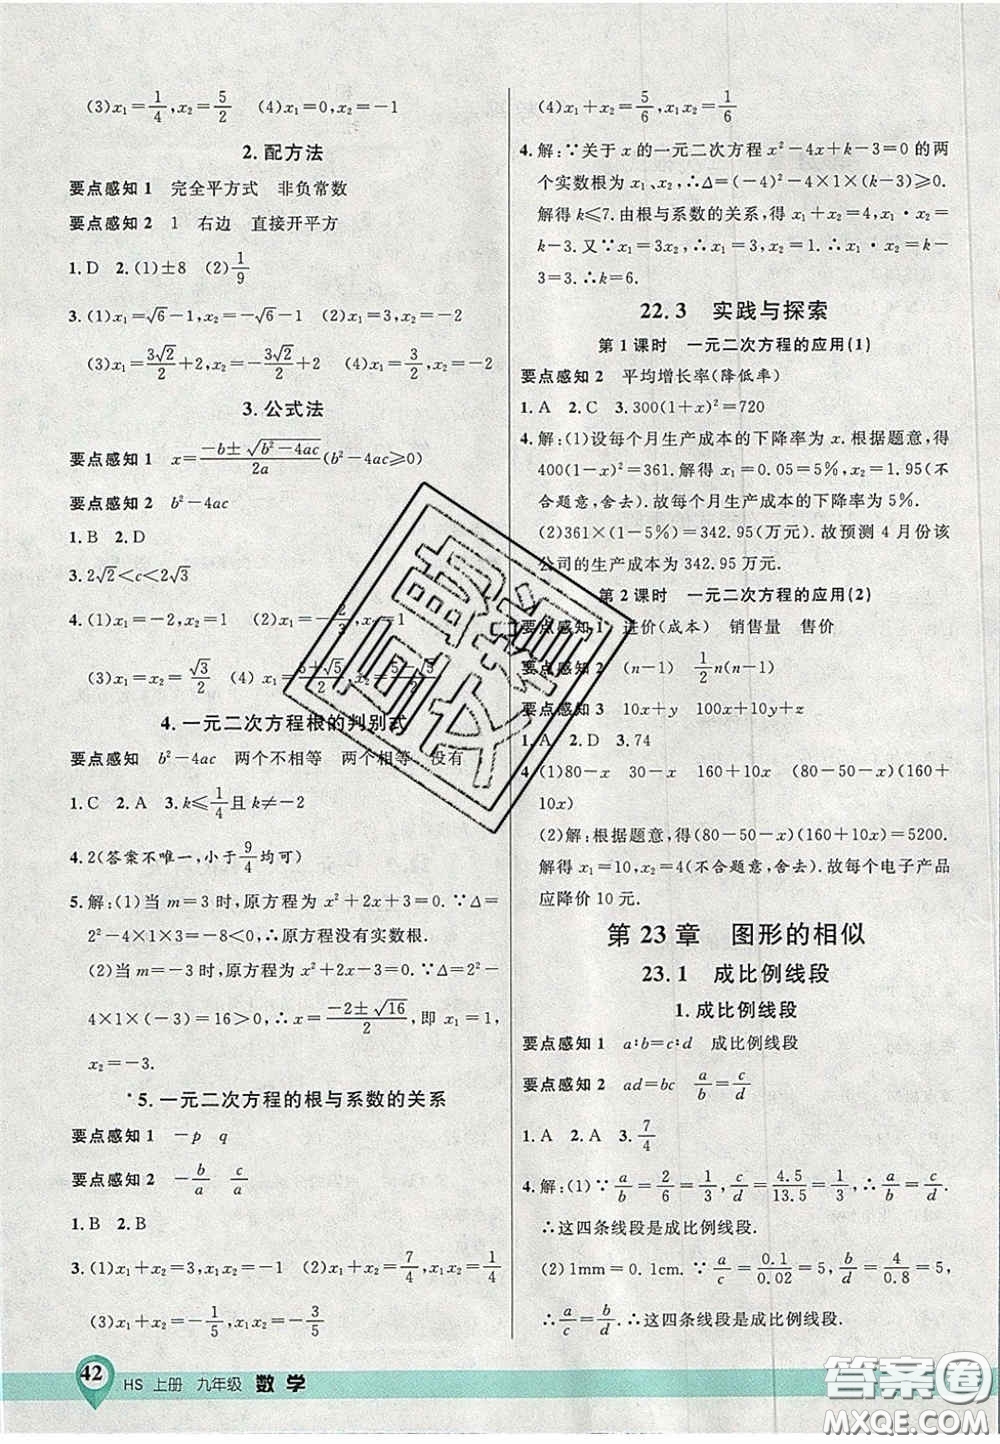 (3)x₁=1/4,x₂=5/2 (4)x₁=0,x₂=-1
2.配方法
要点感知1 完全平方式 非负常数
要点感知2 1 右边 直接开平方
1.D 2.(1)±8 (2)1/9
3.(1)x₁=√6-1,x₂=-√6-1 (2)x₁=x₂=-2
(3)x₁=3√2/2+2,x₂=-3√2/2+2
3.公式法
要点感知1 x=(-b±√(b²-4ac))/2a(b²-4ac≥0)
要点感知2 b²-4ac
1.B 2.D
3.2√2<c<2√3
4.(1)x₁=-2,x₂=1 (2)x₁=-2/3,x₂=1
(3)x₁=x₂=√3/2 (4) x₁=
4.一元二次方程根的判别式
要点感知 b²-4ac 两个不相等 两个相等 没有
1.C 2.A 3.k≤1/4且k≠-2
4.2(答案不唯一,小于9/4均可)
5.解:(1)当m=3时,原方程为x²+2x+3=0.∵Δ=
2²-4×1×3=-8<0,∴原方程没有实数根.
(2)当m=-3时,原方程为x²+2x-3=0.∵Δ=2²-
4×1×(-3)=16>0,∴x=(-2±√16)/2,即x₁=1,
x₂=-3.
5.一元二次方程的根与系数的关系
要点感知1 -p q
要点感知2 -b/a c/a
1.B 2.B
3.(1)x₁+x₂=3,x₁x₂=-1 (2)x₁+x₂=7/4,x₁x₂=1/4
(3)x₁+x₂=-1/5,x₁x₂=-3/5
(4)x₁+x₂=5/6,x₁x₂=1/6
4.解:∵关于x的一元二次方程x²-4x+k-3=0的两
个实数根为x₁、x₂,∴Δ=(-4)²-4×1×(k-3)≥0.
解得k≤7.由根与系数的关系,得x₁+x₂=4,x₁·x₂=
k-3.又∵x₁=3x₂,∴x₁=3,x₂=1.∴x₁·x₂=k-3=3.∴k=6.
22.3 实践与探索
第1课时 一元二次方程的应用(1)
要点感知2 平均增长率(降低率)
1.A 2.C 3.300(1+x)²=720
4.解:(1)设每个月生产成本的下降率为x.根据题意,得
400(1-x)²=361.解得x₁=0.05=5%,x₂=1.95(不
合题意,舍去).故每个月生产成本的下降率为5%.
(2)361×(1-5%)=342.95(万元).故预测4月份该
公司的生产成本为342.95万元.
第2课时 一元二次方程的应用(2)
要点感知1 进价(成本) 销售量 售价
要点感知2 (n-1) 1/2n(n-1)
要点感知3 10x+y 100x+10y+z
1.A 2.D 3.74
4.(1)80-x 30-x 160+10x (80-50-x)(160+
10x)
(2)解:根据题意,得(80-50-x)(160+10x)=5200.
解得x₁=10,x₂=4(不合题意,舍去).故每个电子产品
应降价10元.
第23章 图形的相似
23.1 成比例线段
1.成比例线段
要点感知1 a∶b=c∶d 成比例线段
要点感知2 ad=bc a/b=c/d
1.A 2.A 3.7/4
4.解:(1)∵a/b=2/6=1/3,c/d=4.5/13.5=1/3,∴a/b=c/d.
∴这四条线段是成比例线段.
(2)1mm=0.1cm.∵a/c=0.1/0.02=5,b/d=4/0.8=5,
∴a/c=b/d.∴这四条线段是成比例线段.
42 HS 上册 九年级 数学
答案圈
MXQE.COM